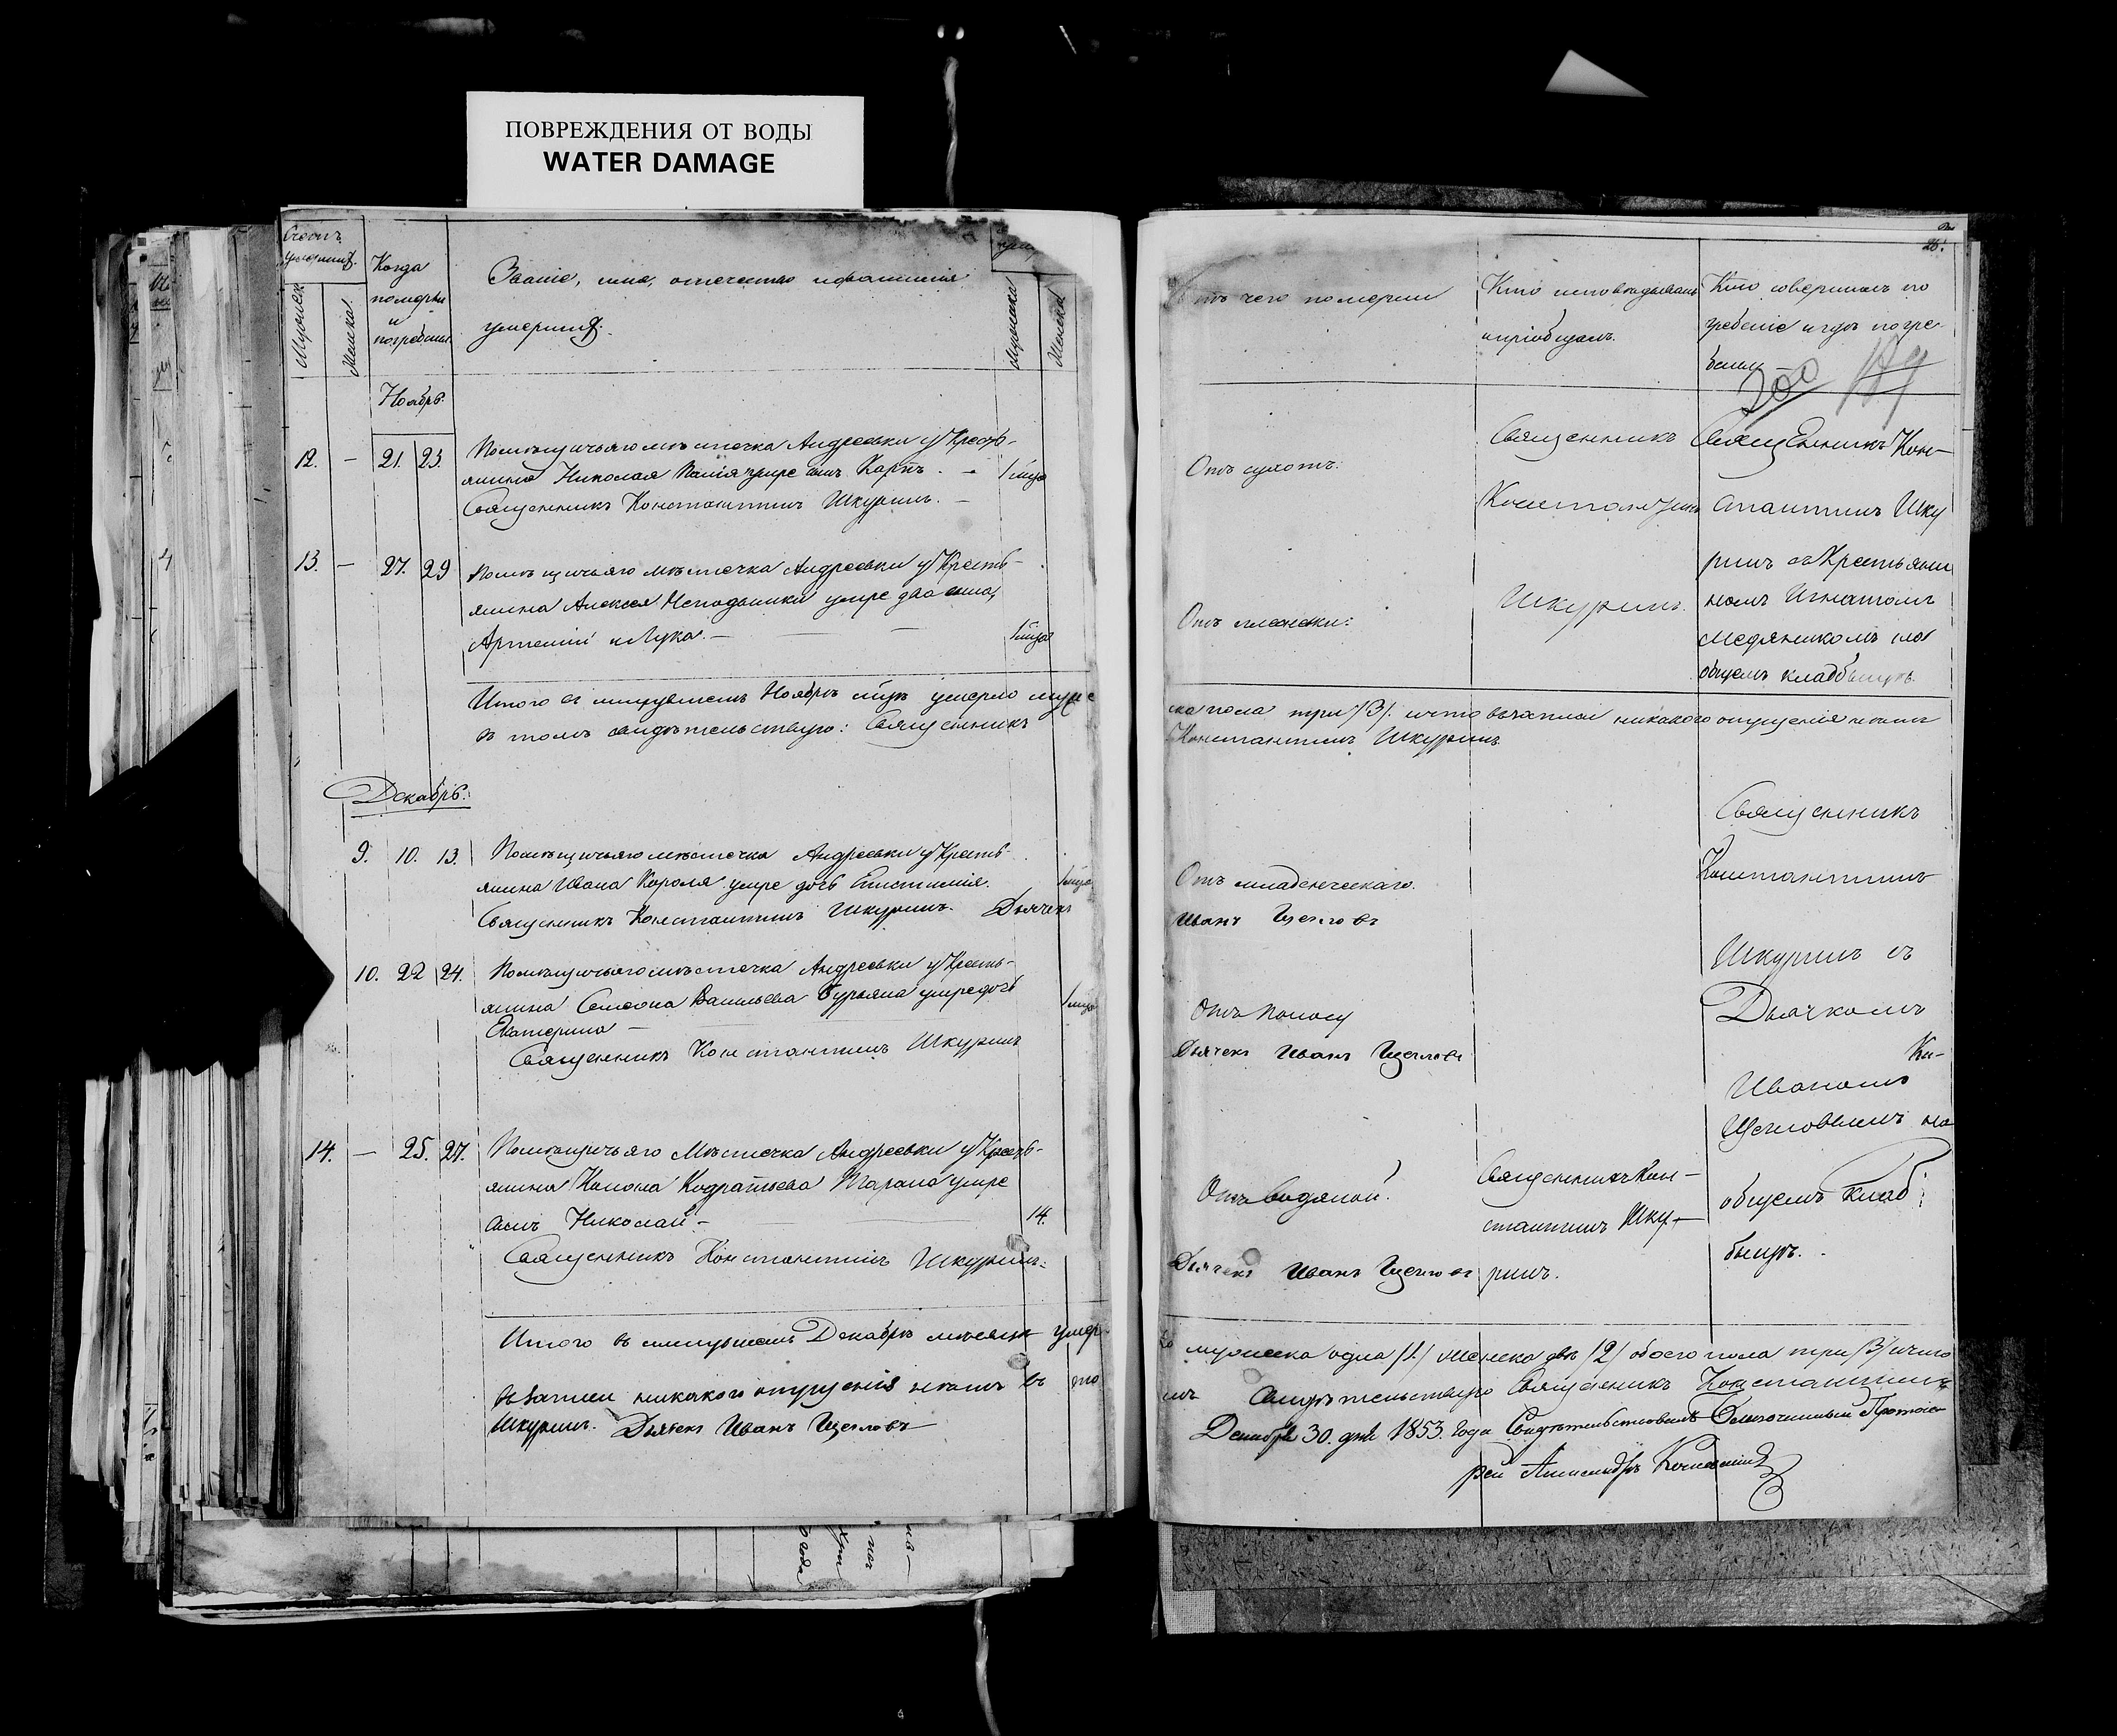 ПОВРЕЖДЕНИЯ ОТ ВОДЫ
WATER DAMAGE
Счетъ
умершихъ.
Мужеска
Женска.
Когда
померли
и
погребены
Званіе, имя, отечество и фамилія
умершихъ.
Мужеска
Женска
Ноябрь.
12. — 21. 23.
Помѣщичьяго мѣстечка Андреевки у Кресть-
янина Николая умре сынъ Карпъ. —
Священникъ Константинъ Шкуринъ. —
13. — 27. 29
Помѣщичьяго мѣстечка Андреевки у Кресть-
янина Алексея умре два сына,
Артемій и Лука. —
Итого въ минувшемъ Ноябрѣ умерло муже
въ томъ свидѣтельствую: Священникъ
Декабрь.
9. 10. 13.
Помѣщичьяго мѣстечка Андреевки у Кресть-
янина Ивана Короля умре дочь Епистимія.
Священникъ Константинъ Шкуринъ. Дьячекъ
10. 22 24.
Помѣщичьяго мѣстечка Андреевки у Кресть-
янина Семеона Васильева Бурьяна умре дочь
Екатерина —
Священникъ Константинъ Шкуринъ
14. — 25. 27.
Помѣщичьяго Мѣстечка Андреевки у Кресть-
янина Конона Кодратьева Тарана умре
сынъ Николай — 14.
Священникъ Константинъ Шкуринъ.
Итого въ минувшемъ Декабрѣ мѣсяцѣ умер
въ записи никакого опущенія нѣтъ въ то
Шкуринъ. Дьячекъ Иванъ Щегловъ
26.
Отъ чего померли
Кто исповѣдывалъ
и пріобщалъ.
Кто совершалъ по
гребеніе и гдѣ погре-
бены
200 189
Отъ сухотъ.
Священникъ
Константинъ
Шкуринъ.
Священникъ Кон-
стантинъ Шку
ринъ съ Крестьяни
номъ Игнатомъ
Медяникомъ на
общемъ кладбищѣ.
ска пола три /3/. и что въ записи никакого опущенія нѣтъ
Константинъ Шкуринъ.
Отъ младенческаго.
Иванъ Щегловъ
Отъ поносу
Дьячекъ Иванъ Щегловъ
Отъ водяной.
Дьячекъ Иванъ Щегловъ
Священникъ Кон-
стантинъ Шку-
ринъ.
Священникъ
Константинъ
Шкуринъ съ
Дьячкомъ
Иваномъ
Щегловымъ на
общемъ клад
бищѣ.
ло мужеска одна /1/ женска двѣ /2/ обоего пола три /3/ и что
мъ Свидѣтельствую Священникъ Константинъ
Декабря 30. дня 1853. года Свидѣтельствовалъ Благочинный Протоіе
рей Александръ